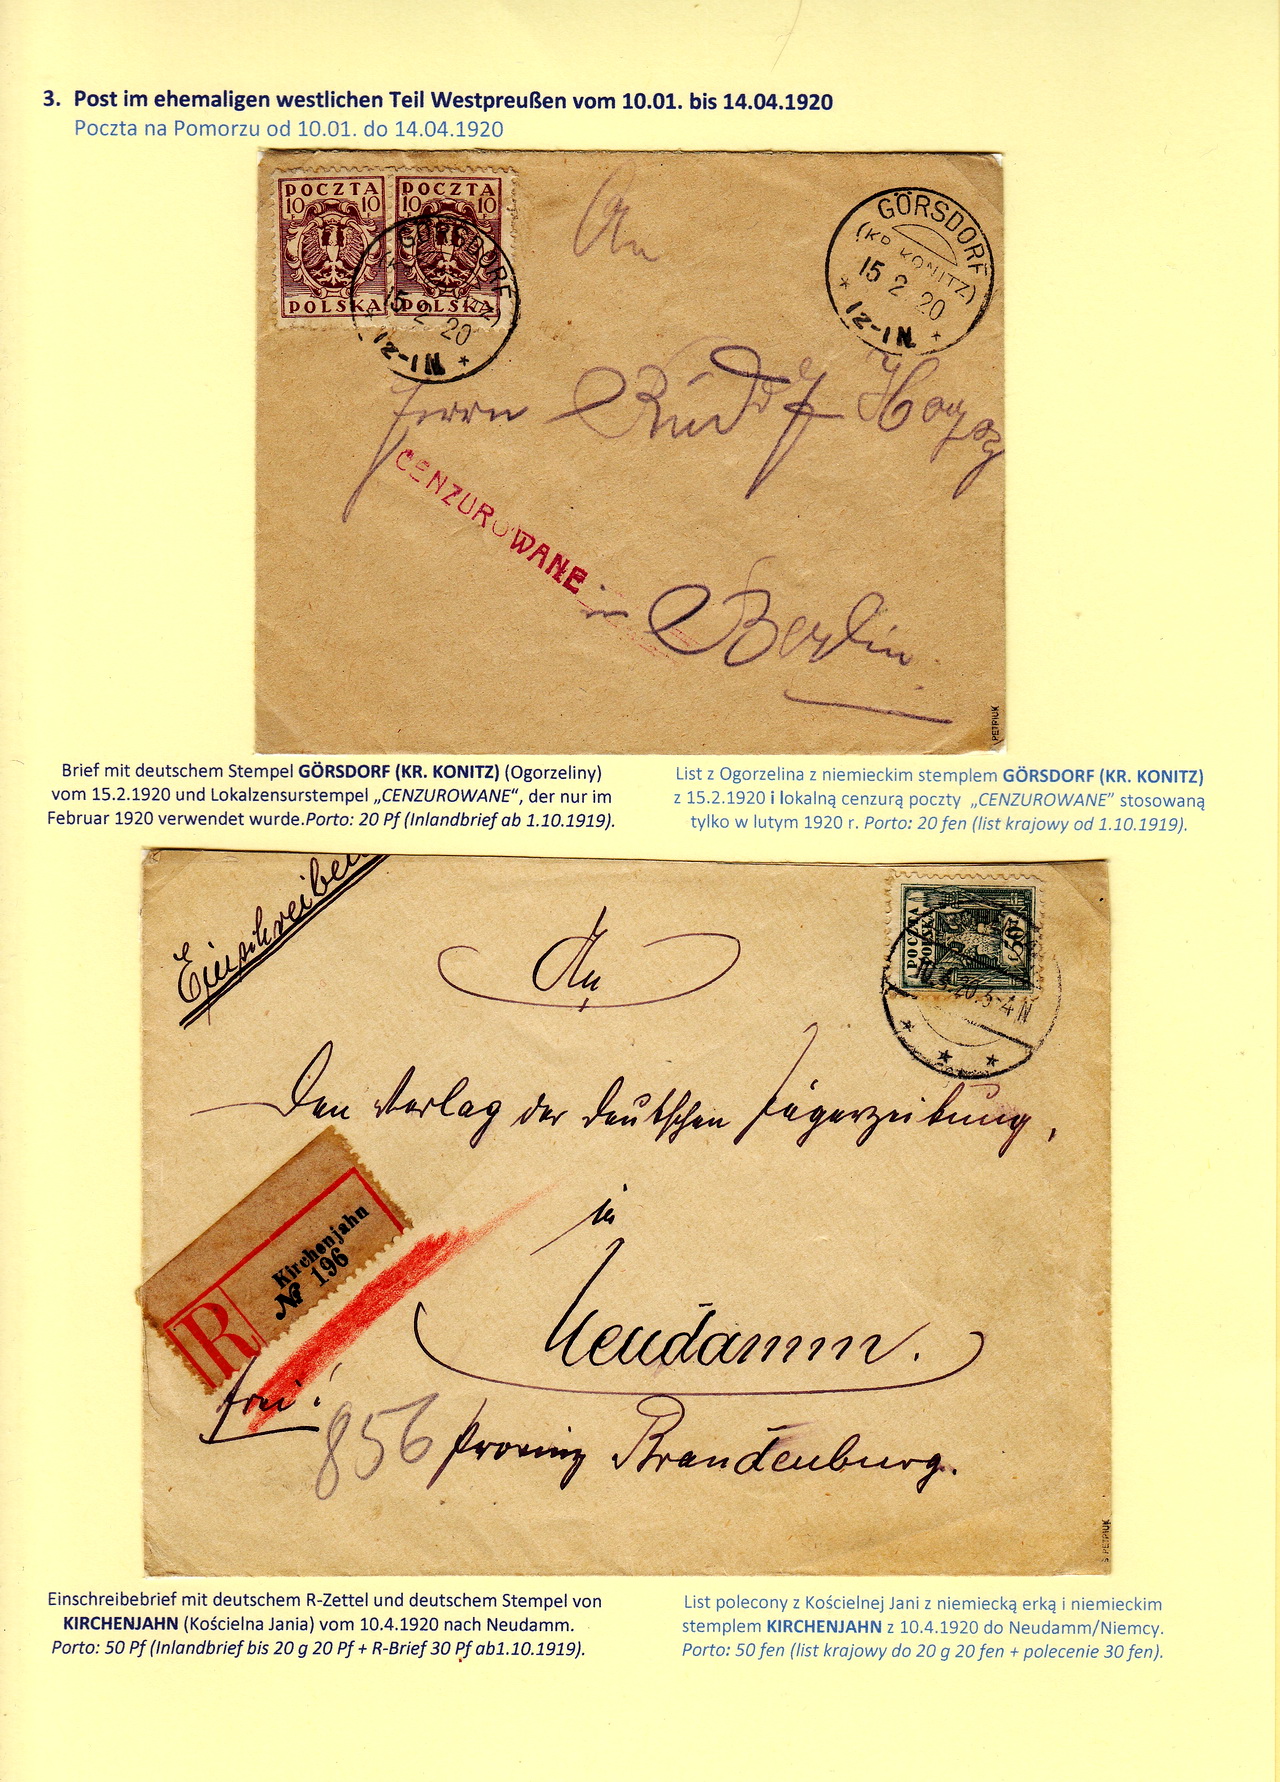 3. Post im ehemaligen westlichen Teil Westpreußen vom 10.01. bis 14.04.1920
Poczta na Pomorzu od 10.01. do 14.04.1920
POCZTA POCZTA
10 10 10 10
POLSKA POLSKA
GÖRSDORF
(KR. KONITZ)
15 2 20
* 12-1N *
An
GÖRSDORF
(KR. KONITZ)
15 2 20
* 12-1N *
Herrn Rudolf
CENZUROWANE
in Berlin.
PETRIUK
Brief mit deutschem Stempel GÖRSDORF (KR. KONITZ) (Ogorzeliny)
vom 15.2.1920 und Lokalzensurstempel „CENZUROWANE“, der nur im
Februar 1920 verwendet wurde.Porto: 20 Pf (Inlandbrief ab 1.10.1919).
List z Ogorzelina z niemieckim stemplem GÖRSDORF (KR. KONITZ)
z 15.2.1920 i lokalną cenzurą poczty „CENZUROWANE” stosowaną
tylko w lutym 1920 r. Porto: 20 fen (list krajowy od 1.10.1919).
Einschreiben
POCZTA
POLSKA
50
An
Den Verlag der deutschen Jägerzeitung,
in
Neudamm.
Provinz Brandenburg.
R
Kirchenjahn
№ 196
frei!
856
S. PETRIUK
Einschreibebrief mit deutschem R-Zettel und deutschem Stempel von
KIRCHENJAHN (Kościelna Jania) vom 10.4.1920 nach Neudamm.
Porto: 50 Pf (Inlandbrief bis 20 g 20 Pf + R-Brief 30 Pf ab1.10.1919).
List polecony z Kościelnej Jani z niemiecką erką i niemieckim
stemplem KIRCHENJAHN z 10.4.1920 do Neudamm/Niemcy.
Porto: 50 fen (list krajowy do 20 g 20 fen + polecenie 30 fen).